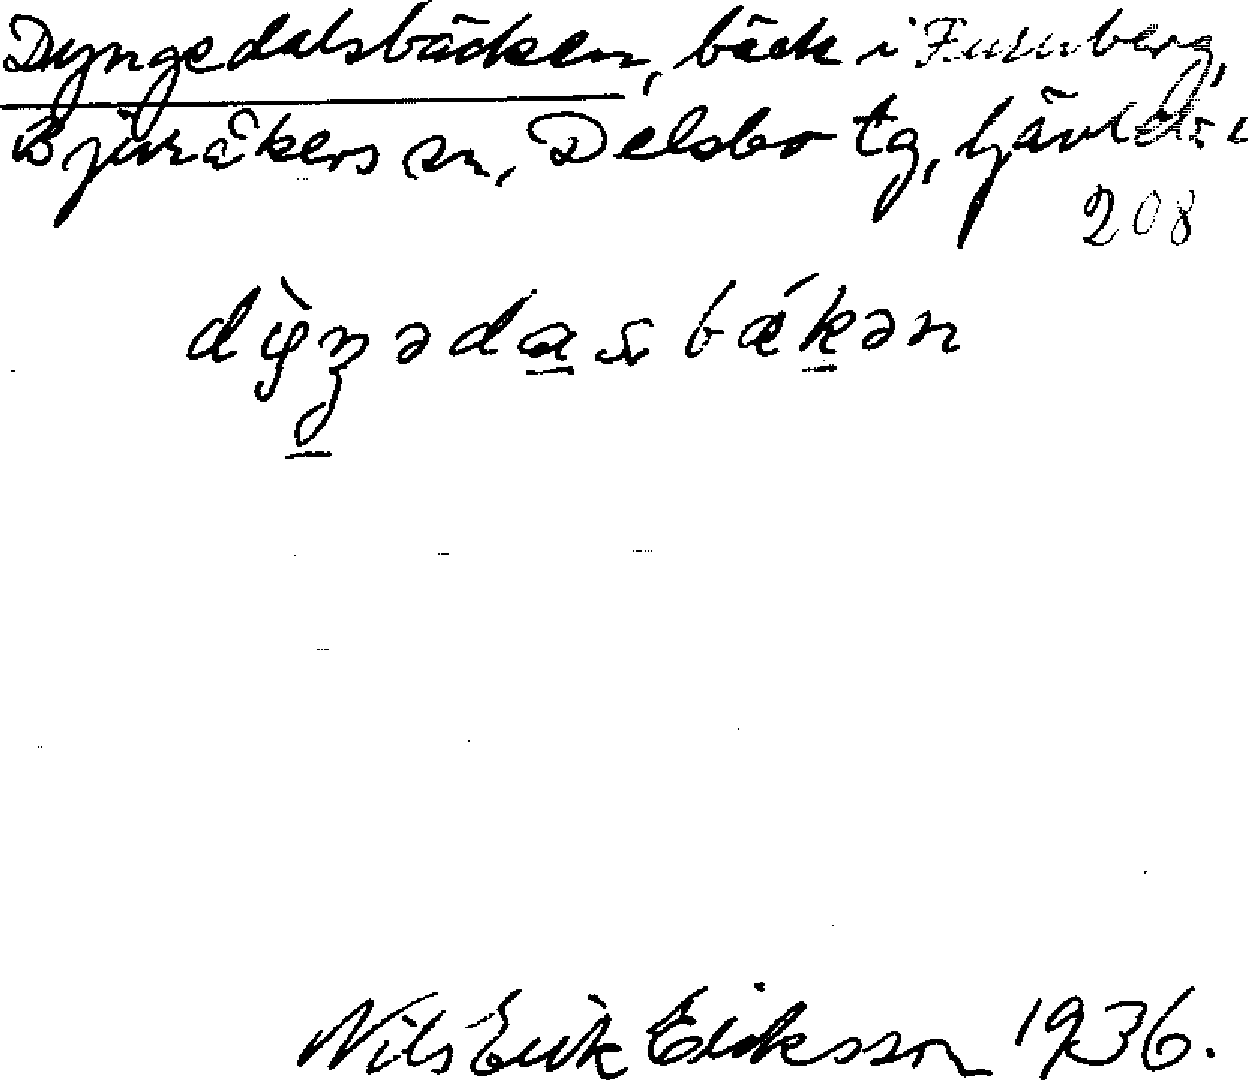 Dyngedalsbäcken, bäck i Furuberg,
Bjuråkers sn, Delsbo tg, Gävleb. l
208
dỳŋədas bákən
Nils Erik Eriksson 1936.